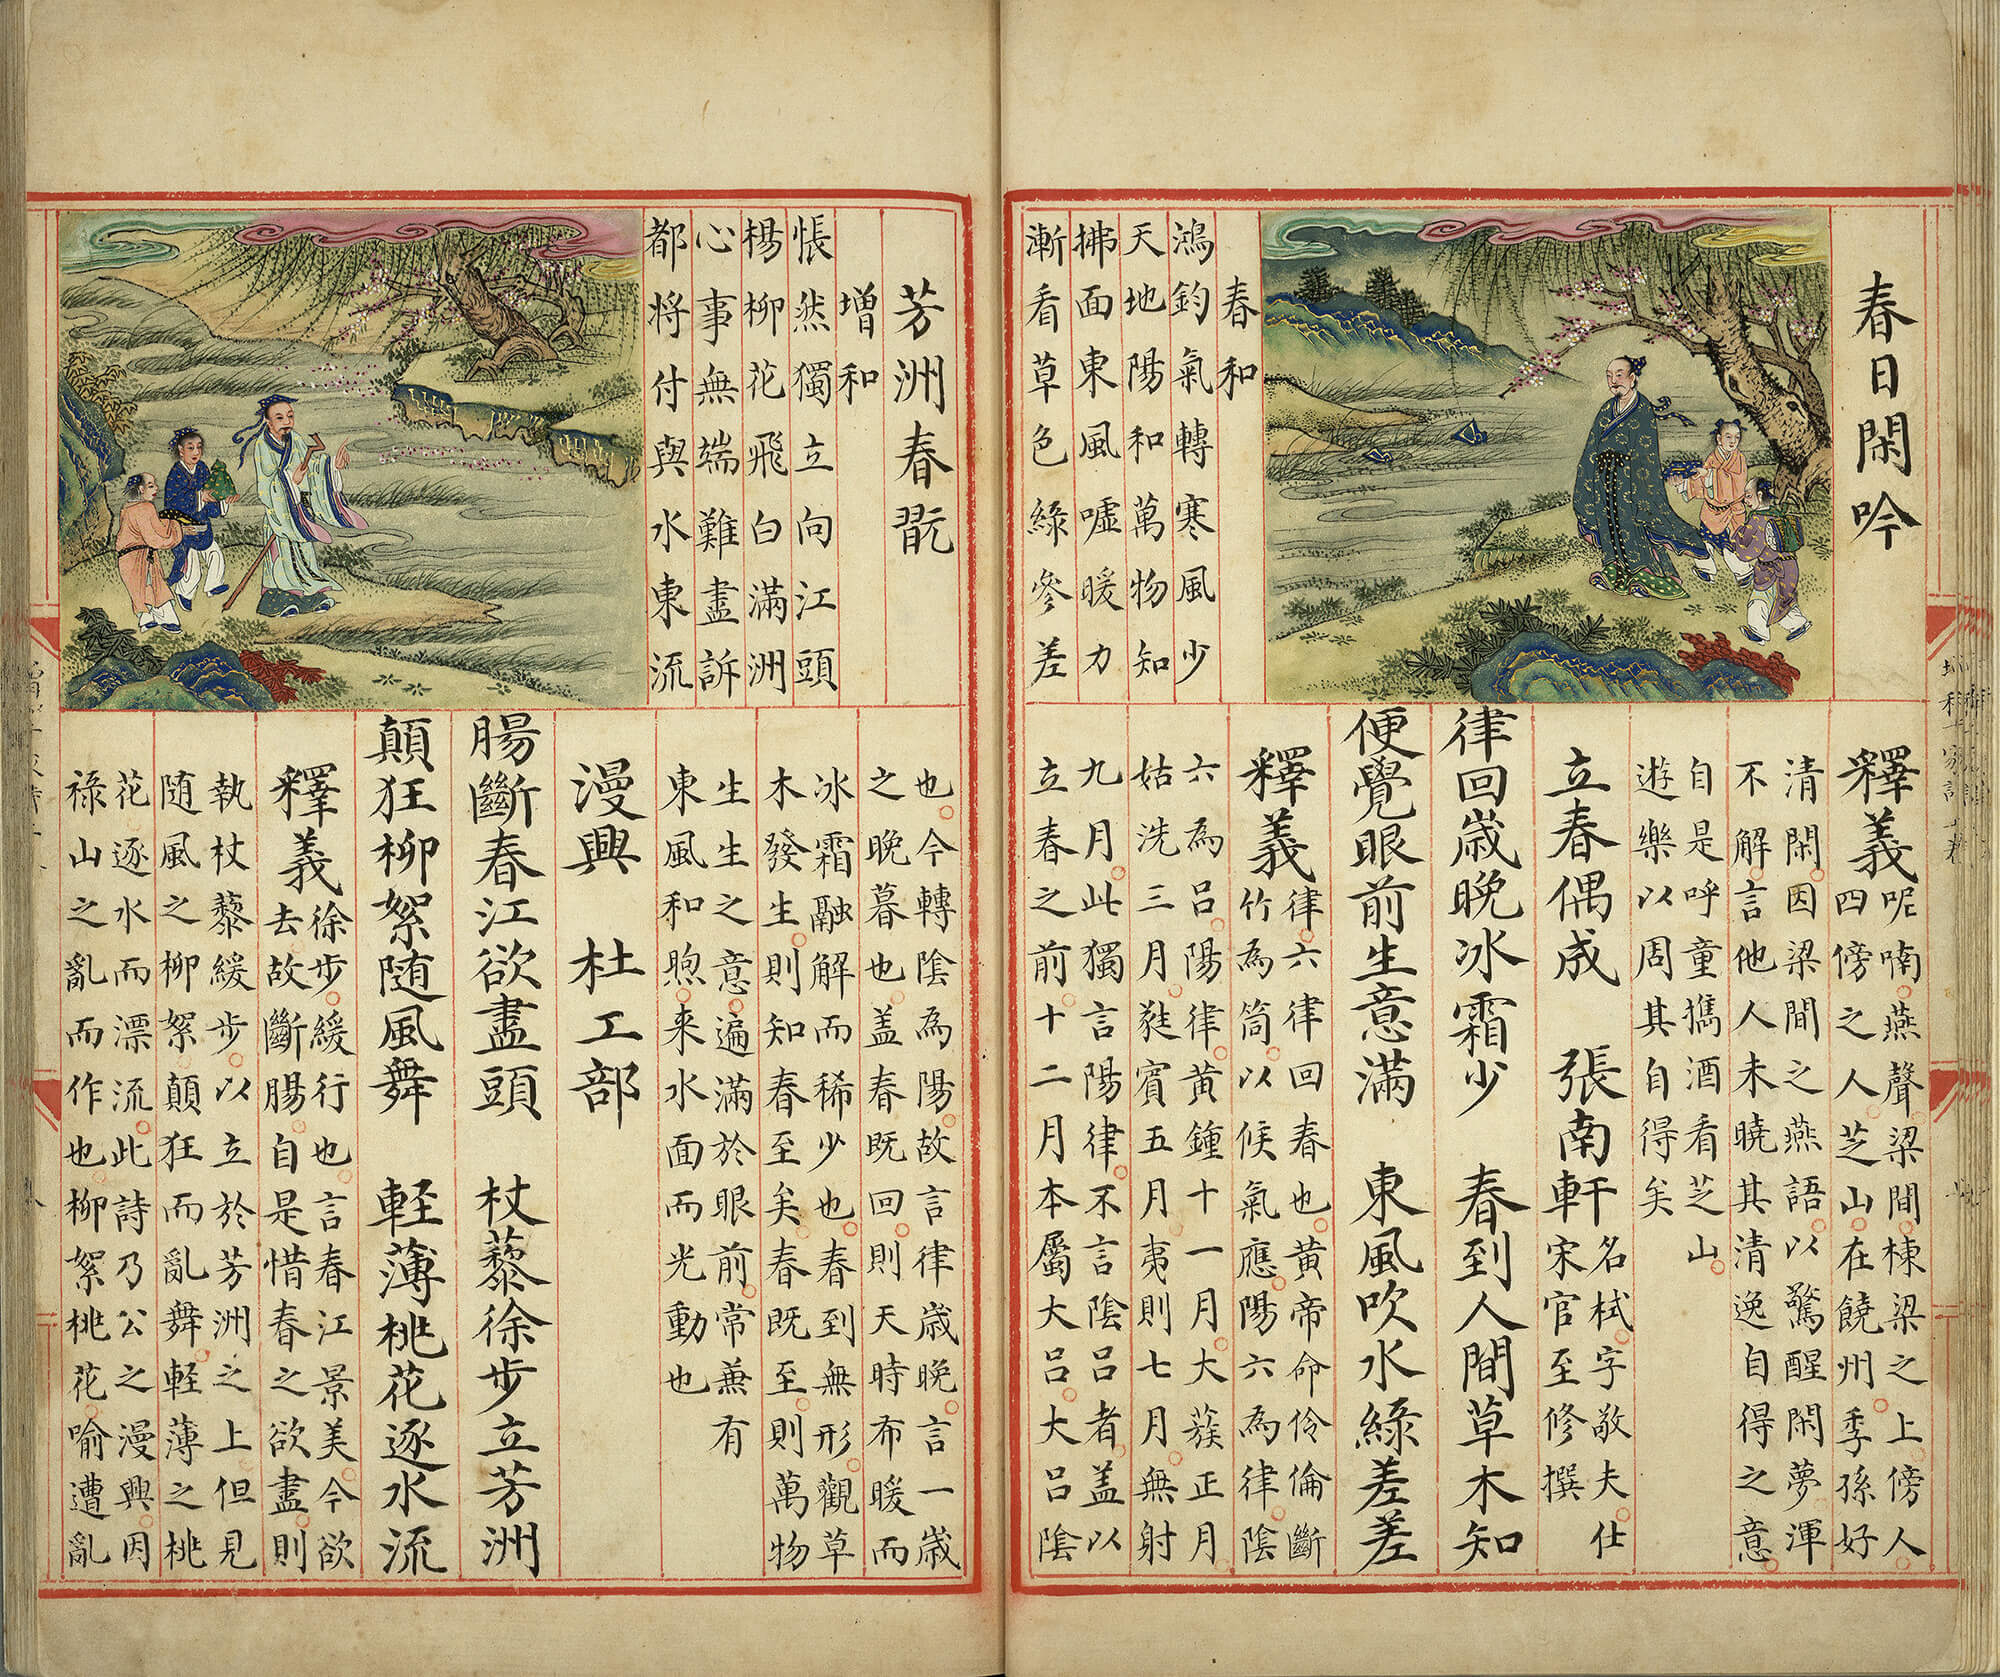 春日閑吟
春和
鴻鈞氣轉寒風少
天地陽和萬物知
拂面東風噓暖力
漸看草色綠參差
釋義呢喃燕聲梁間棟梁之上傍人
四傍之人芝山在饒州季孫好
清閑因梁間之燕語以驚醒閑夢渾
不解言他人未曉其清逸自得之意
自是呼童擕酒看芝山
遊樂以周其自得矣
立春偶成 張南軒名栻字敬夫仕
宋官至修撰
律回歲晚冰霜少 春到人間草木知
便覺眼前生意滿 東風吹水綠差差
釋義律六律回春也黃帝命伶倫斷
竹為筒以候氣應陽六為律陰
六為呂陽律黃鍾十一月大蔟正月
姑洗三月蕤賓五月夷則七月無射
九月此獨言陽律不言陰呂者蓋以
立春之前十二月本屬大呂大呂陰
芳洲春翫
增和
悵然獨立向江頭
楊柳花飛白滿洲
心事無端難盡訴
都將付與水東流
也今轉陰為陽故言律歲晚言一歲
之晚暮也蓋春既回則天時布暖而
冰霜融解而稀少也春到無形觀草
木發生則知春至矣春既至則萬物
生生之意遍滿於眼前常兼有
東風和煦来水面而光動也
漫興 杜工部
腸斷春江欲盡頭 杖藜徐步立芳洲
顛狂柳絮随風舞 軽薄桃花逐水流
釋義徐步緩行也言春江景美今欲
去故斷腸自是惜春之欲盡則
執杖藜緩步以立於芳洲之上但見
随風之柳絮顛狂而亂舞軽薄之桃
花逐水而漂流此詩乃公之漫興因
祿山之亂而作也柳絮桃花喻遭亂